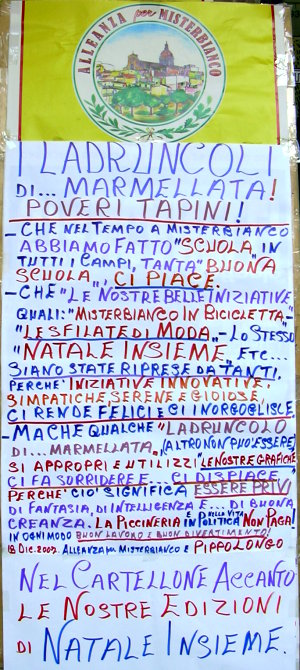 ALLEANZA per MISTERBIANCO
I LADRUNCOLI
DI... MARMELLATA!
POVERI TAPINI!
- CHE NEL TEMPO A MISTERBIANCO
ABBIAMO FATTO "SCUOLA", IN
TUTTI I CAMPI, TANTA "BUONA
SCUOLA", CI PIACE.
- CHE "LE NOSTRE BELLE INIZIATIVE
QUALI: "MISTERBIANCO IN BICICLETTA"
"LE SFILATE DI MODA" - LO STESSO
"NATALE INSIEME" ETC...
SIANO STATE RIPRESE DA TANTI,
PERCHE' INIZIATIVE INNOVATIVE,
SIMPATICHE, SERENE E GIOIOSE,
CI RENDE FELICI E CI INORGOGLISCE.
- MA CHE QUALCHE "LADRUNCOLO
DI... MARMELLATA", (ALTRO NON PUO' ESSERE)
SI APPROPRI E UTILIZZI "LE NOSTRE GRAFICHE"
CI FA SORRIDERE E... CI DISPIACE
PERCHE' CIO' SIGNIFICA ESSERE PRIVI
DI FANTASIA, DI INTELLIGENZA E... DI BUONA
CREANZA. LA PICCINERIA IN POLITICA E NELLA VITA NON PAGA!
IN OGNI MODO BUON LAVORO E BUON DIVERTIMENTO!
18 DIC. 2007. ALLEANZA PER MISTERBIANCO E PIPPO LONGO
NEL CARTELLONE ACCANTO
LE NOSTRE EDIZIONI
DI NATALE INSIEME.